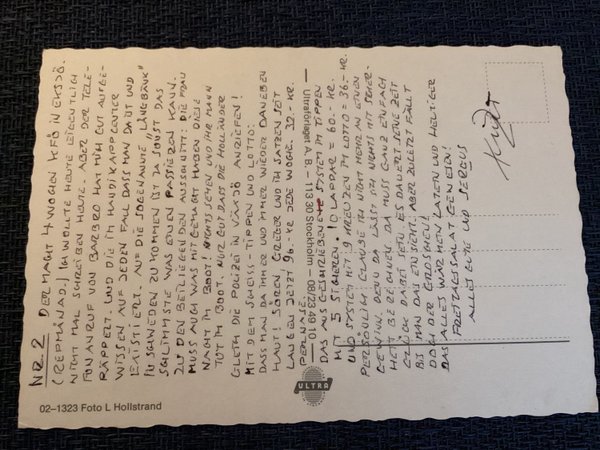 NR. 2 DER MACHT 4 WOCHEN KFÖ IN EKSJÖ.
(REPMÅNAD.) ICH WOLLTE HEUTE EIGENTLICH
NICHT MAL SCHREIBEN HEUTE. ABER DER TELE-
FON ANRUF VON BARBRO HAT MICH GUT AUFGE-
RÄPPELT. UND DIE IM HANDIKAPPCENTER
WISSEN AUF JEDEN FALL DASS MAN DA IST UND
EXISTIERT. AUF DIE SOGENANNTE „LÅNGBÄNK"
IN SCHWEDEN ZU KOMMEN IST JA SONST DAS
SCHLIMMSTE WAS EINEN PASSIEREN KANN.
ZU DEN BEILIEGENDEN AUSSCHNITT: DIE FRAU
MUSS AUCH WAS MITGEMACHT HABEN DIESE
NACHT IM BOOT! NICHTS SEHEN UND IHR MANN
TOT IM BOOT. NUR GUT DASS DIE HOLLÄNDER
GLEICH DIE POLIZEI IN VÄXJÖ ANRIEFEN!
MIT DEM SCHEISS-TIPPEN UND LOTTO:
DASS MAN DA IMMER UND IMMER WIEDER DANEBEN
HAUT! SÖREN GREGER UND ICH SATZEN SEIT
LANGEN JETZT 96.-KR JEDE WOCHE. 32-KR.
PER NASE.
DAS AUSGESCHRIEBENE SYSTEM IM TIPPEN
MIT 5 10 LAPPAR = 60.-KR.
UND SYSTEM MIT 9 KREUZEN IM LOTTO = 36.-KR.
PERSÖNLICH GLAUBE ICH NICHT MEHR AN EINEN
GEWINN. DENN DA LÄSST SICH NICHTS MIT SICHER-
HEIT BERECHNEN. DA MUSS GANZ EINFACH
GLÜCK DABEI SEIN. ES DAUERT SEINE ZEIT
BIS MAN DAS EINSIEHT. ABER ZULETZT FÄLLT
DOCH DER GROSCHEN!
DAS ALLES WÄR MEIN LATEIN UND HEUTIGER
FREITAGSSALAT GEWESEN.
ALLES GUTE UND SERVUS
Ultraförlaget A.B. – 113 30 Stockholm – 08/23 49 10
ULTRA
02–1323 Foto L Hollstrand